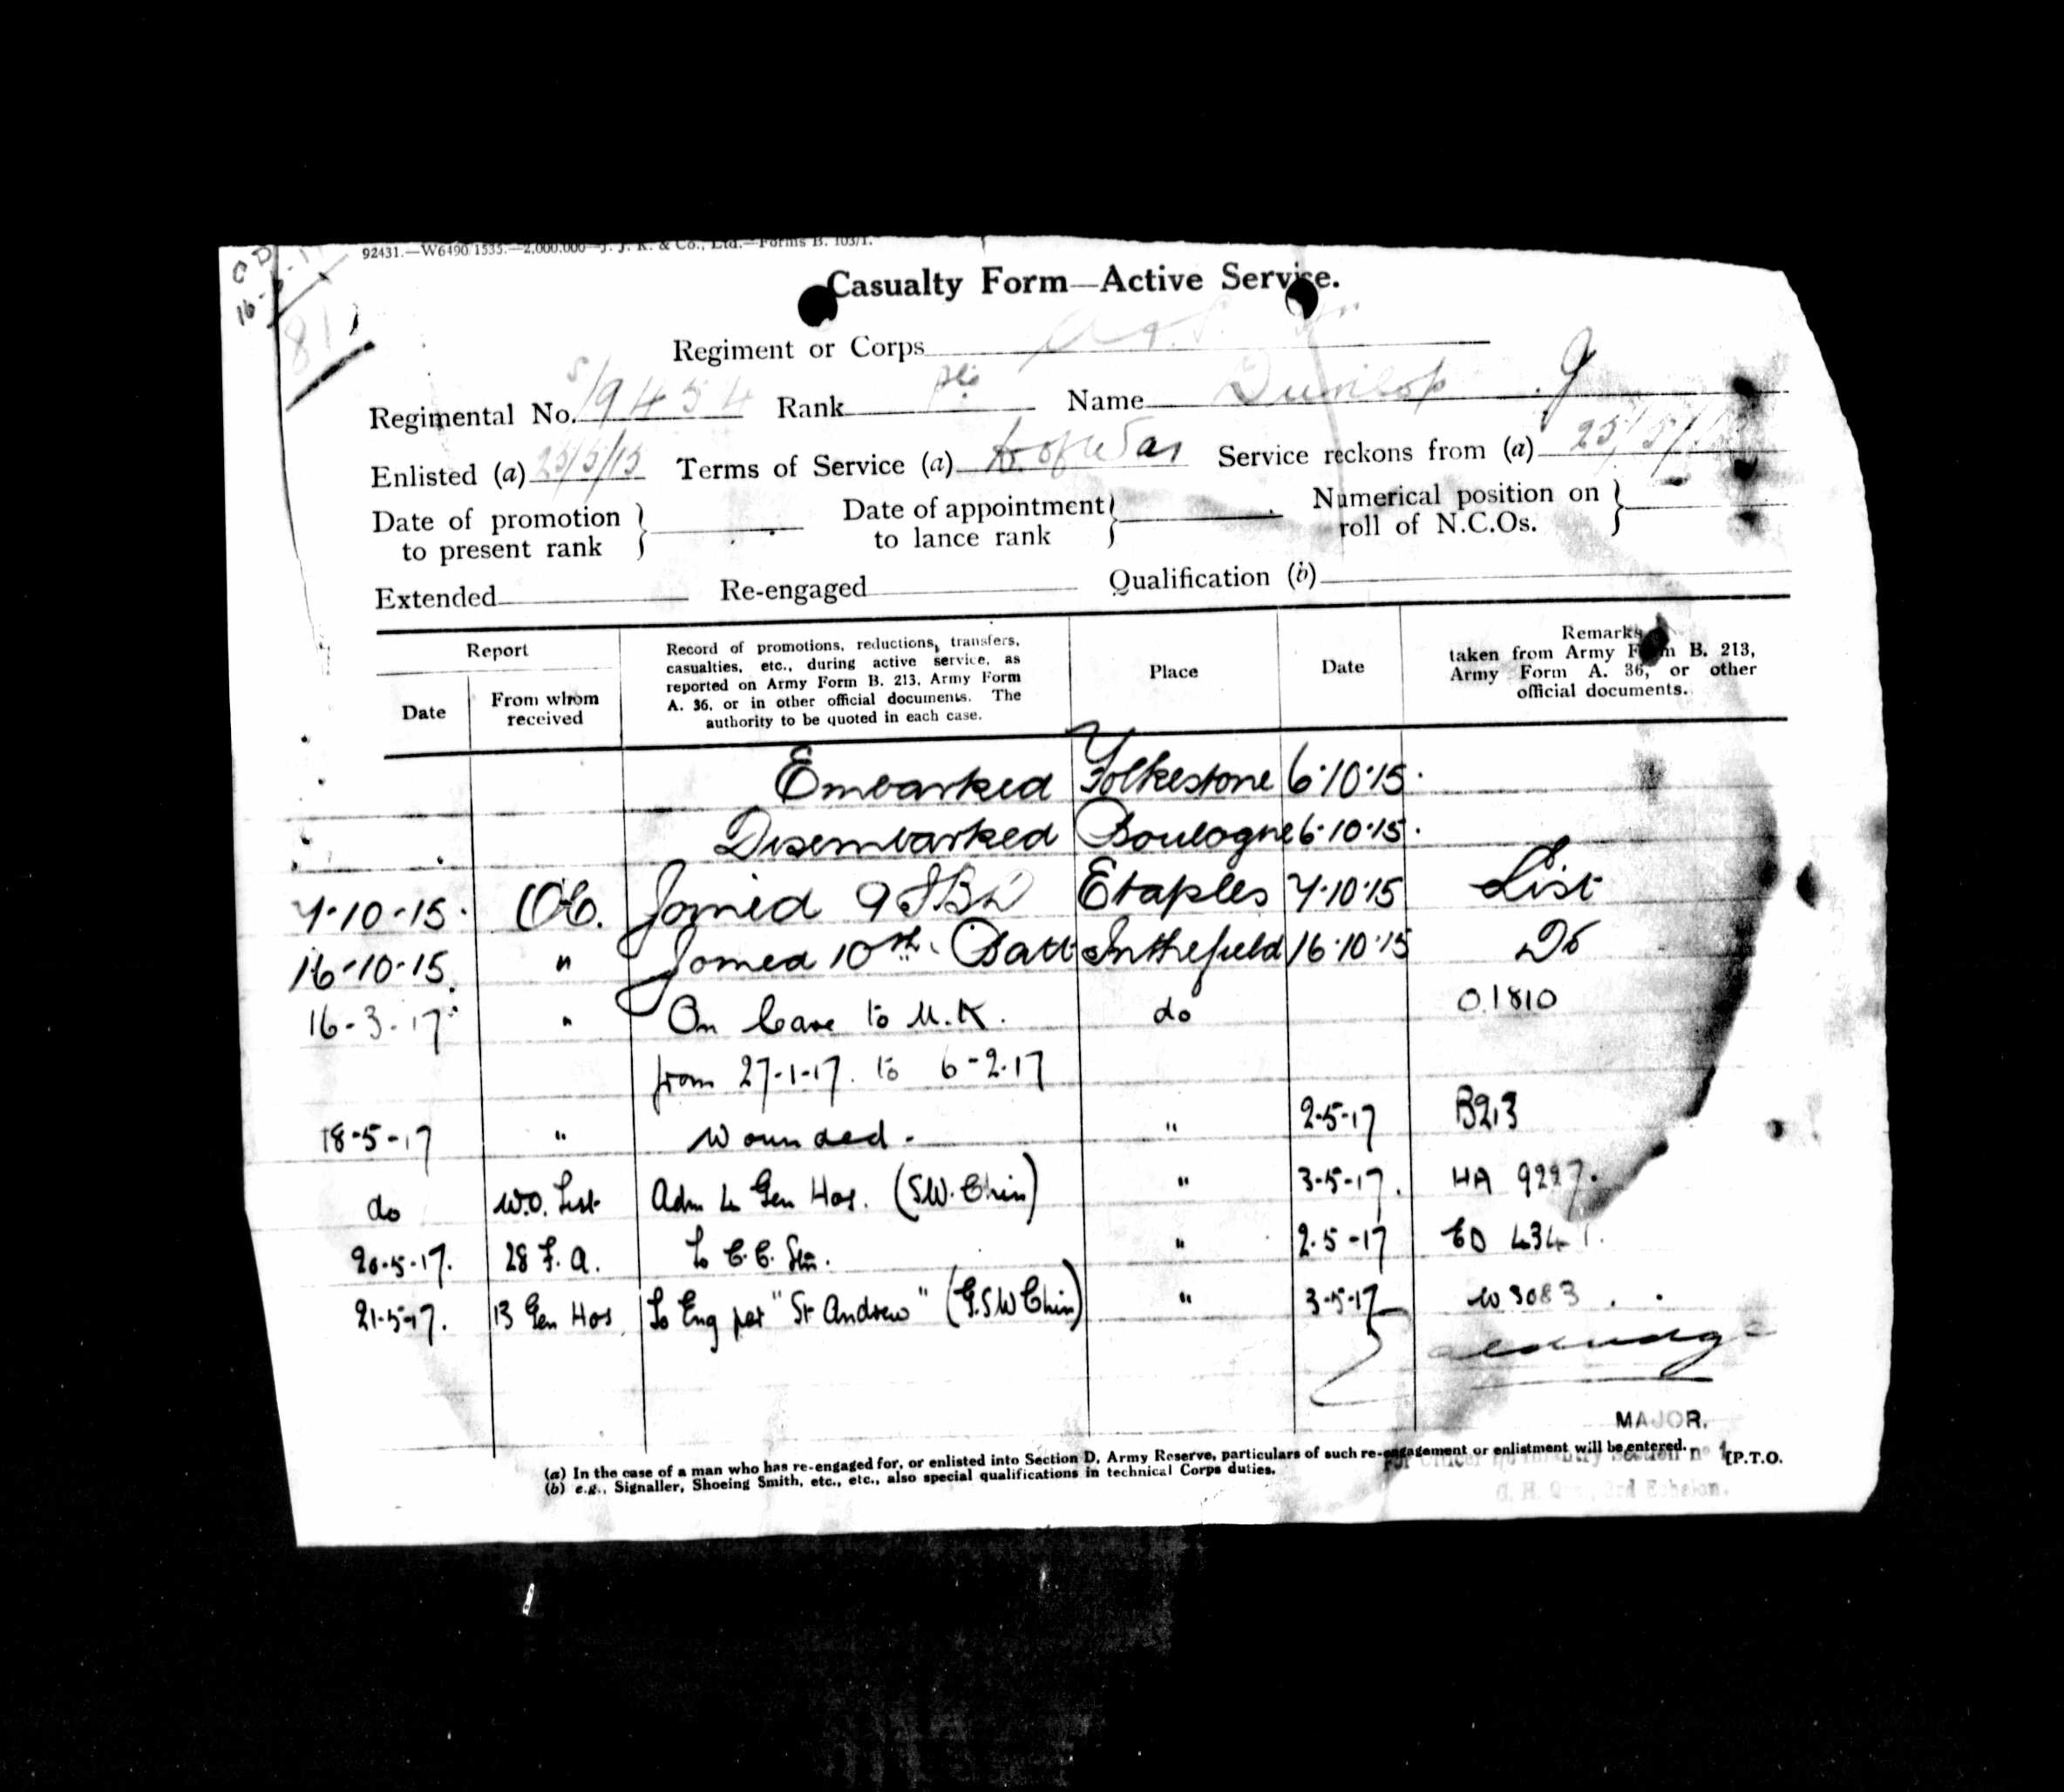 92431.—W6490/1535.—2,000,000—J. J. K. & Co., Ltd.—Forms B. 103/1.
Casualty Form—Active Service.
Regiment or Corps
Regimental No. S/9454 Rank Pte Name Dunlop J
Enlisted (a) 25/5/15 Terms of Service (a) D. of War Service reckons from (a) 25/5/
Date of promotion to present rank } Date of appointment to lance rank } Numerical position on roll of N.C.Os. }
Extended Re-engaged Qualification (b)
Report
Date
From whom received
Record of promotions, reductions, transfers,
casualties, etc., during active service, as
reported on Army Form B. 213, Army Form
A. 36, or in other official documents. The
authority to be quoted in each case.
Place
Date
Remarks
taken from Army Form B. 213,
Army Form A. 36, or other
official documents.
Embarked Folkestone 6·10·15·
Disembarked Boulogne 6·10·15·
7·10·15· OC. Joined 9 IBD Etaples 7·10·15 List
16·10·15. " Joined 10th Batt In the field 16·10·15 Do
16-3-17 " On leave to U.K. do O.1810
from 27-1-17. to 6-2-17
18-5-17 " Wounded - " 2-5-17 B213
do W.O. List Adm 4 Gen Hos. (S.W. Chin) " 3-5-17. HA 9227.
20-5-17. 28 F.A. To C.C. Stn. " 2-5-17 ED 434
21-5-17. 13 Gen Hos To Eng per "St Andrew" (G.S.W Chin) " 3-5-17 W 3083
MAJOR.
(a) In the case of a man who has re-engaged for, or enlisted into Section D, Army Reserve, particulars of such re-engagement or enlistment will be entered.
(b) e.g., Signaller, Shoeing Smith, etc., etc., also special qualifications in technical Corps duties.
[P.T.O.
For Officer i/c Infantry Section no 1
G. H. Q., 3rd Echelon.